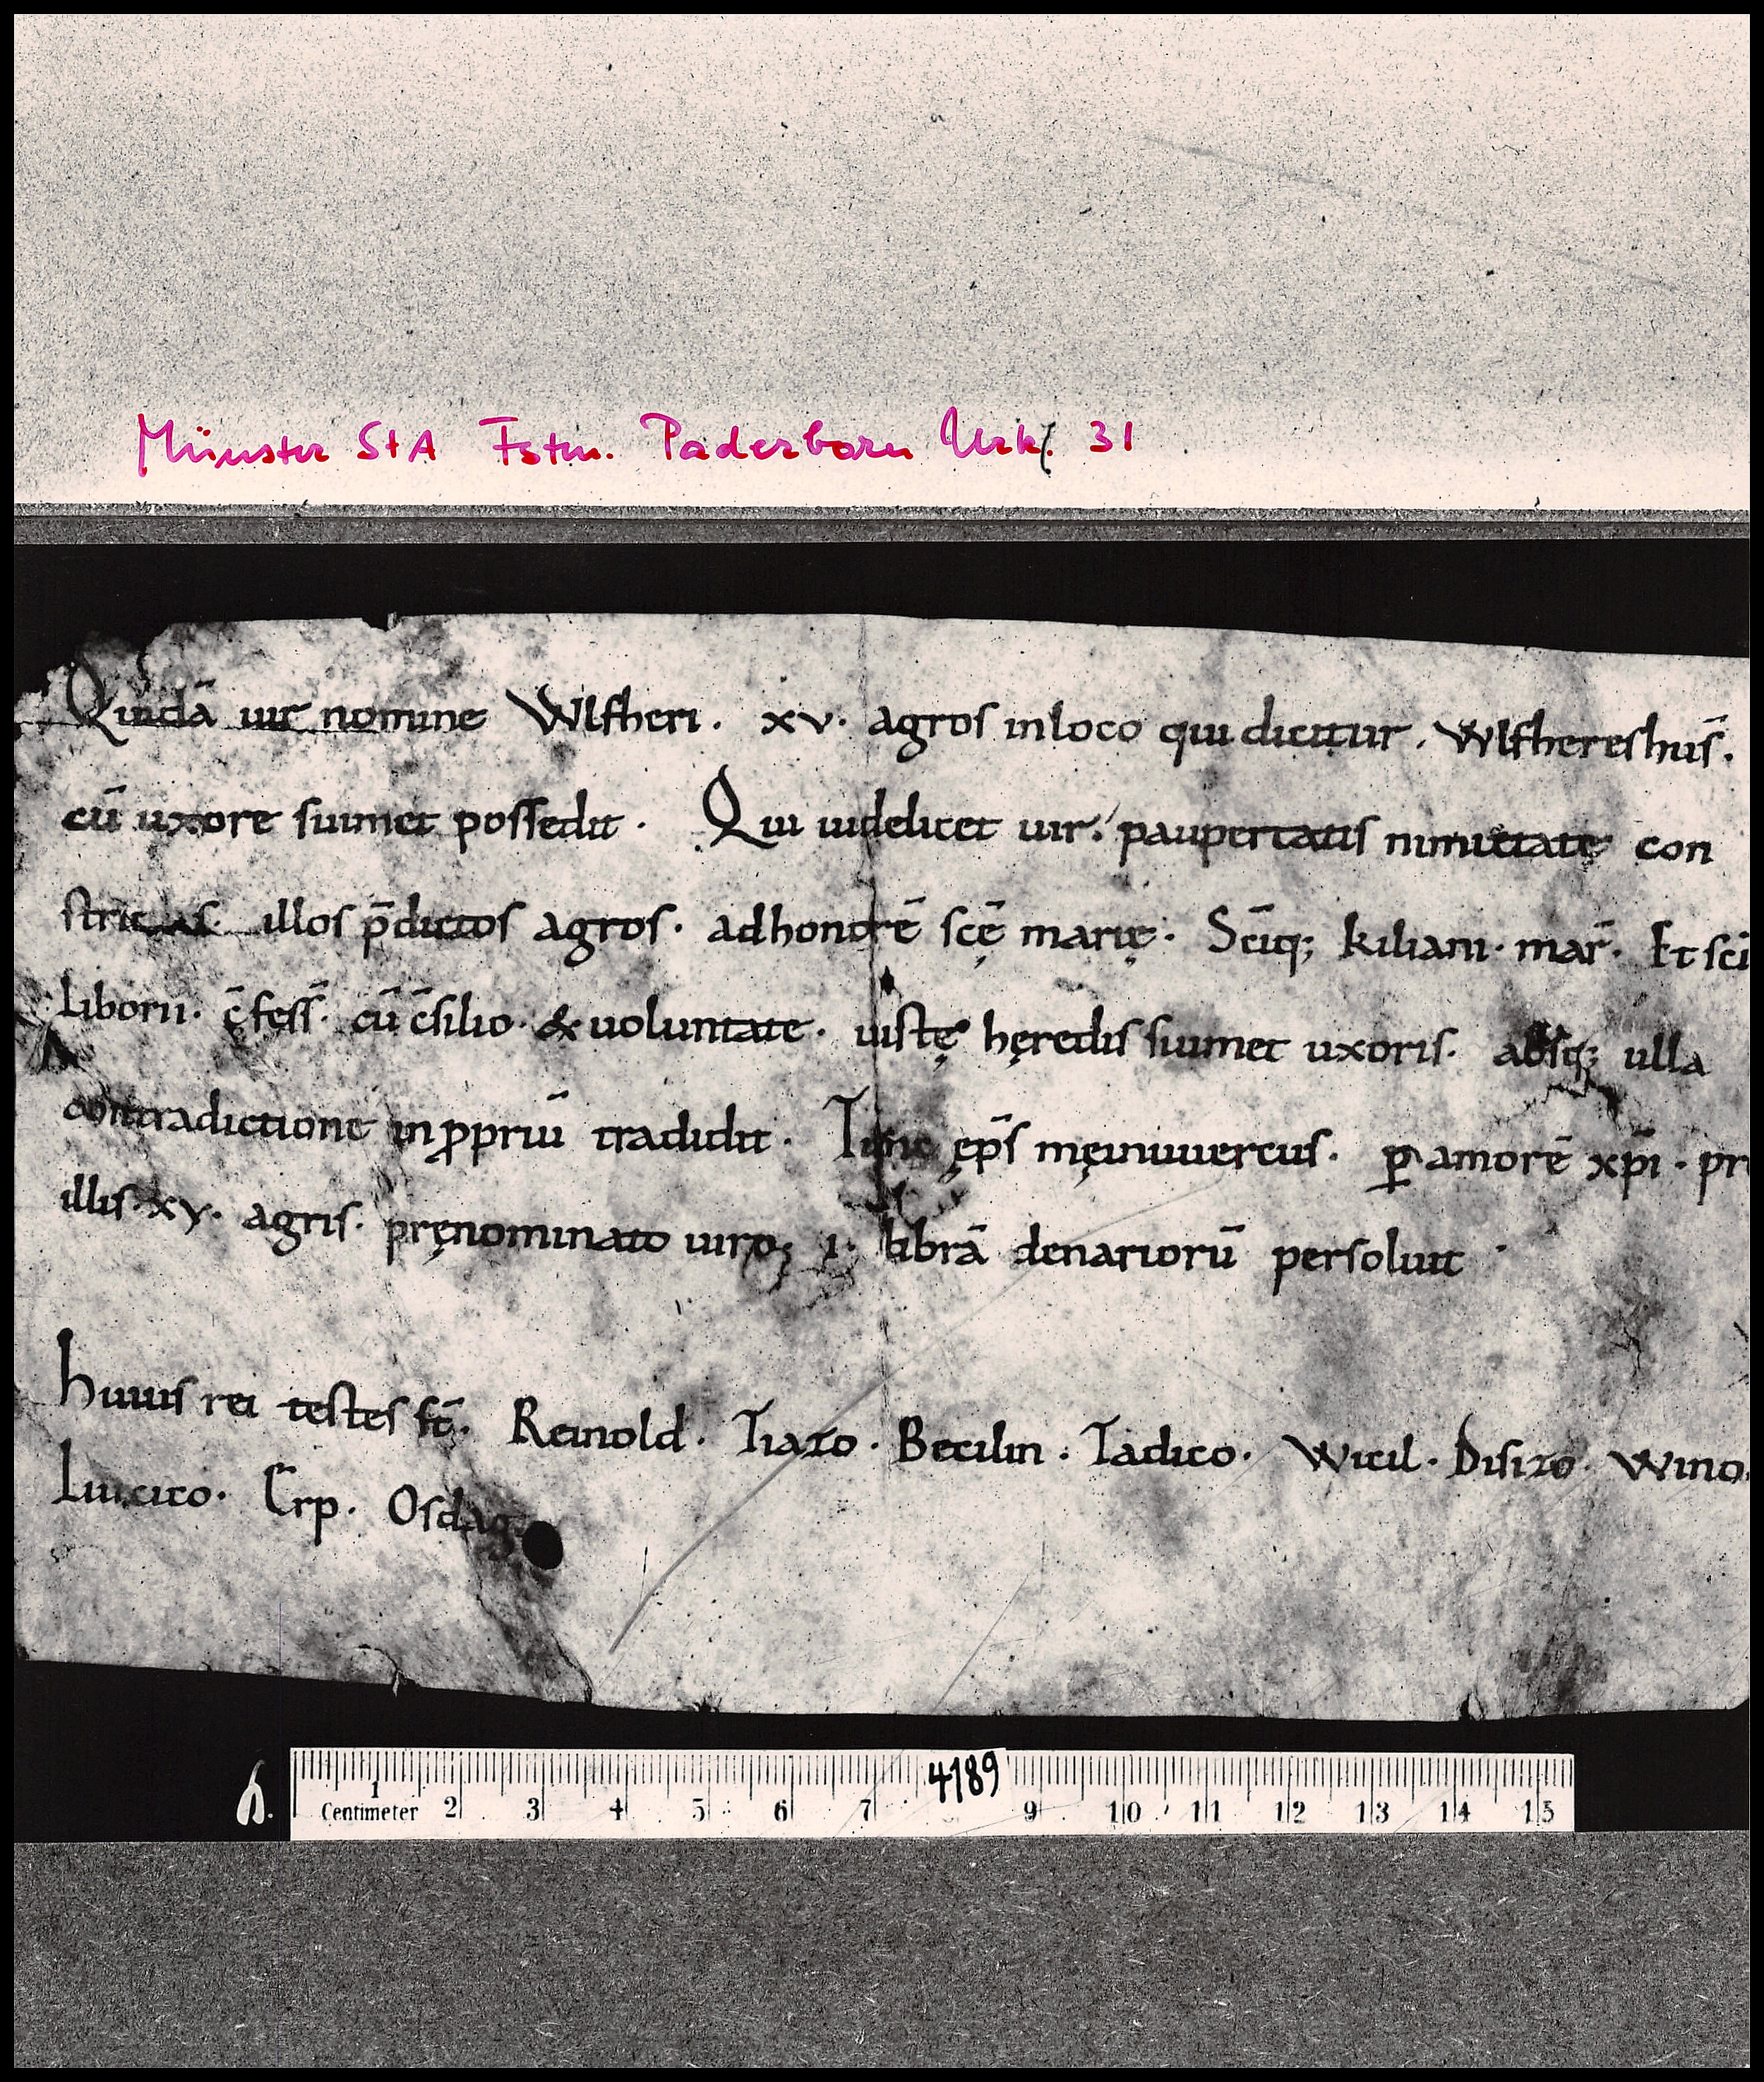 Münster StA Fstm. Paderborn Urk. 31
Quidā uir nomine Wlfheri. xv. agros in loco qui dicitur. Wlfhereshus̄.
cū uxore suimet possedit. Qui uidelicet uir. paupertatis nimietatę con
strictus. illos p̄dictos agros. ad honorē scę̄ marię. Sc̄iq; kiliani. mar̄. Et sc̄i
Liborii. c̄fess̄. cū c̄silio. & uoluntate. iustę hęredis suimet uxoris. absq; ulla
contradictione in ꝓpriū tradidit. Tunc ęp̄s męinuuercus. ꝑ amorē xp̄i. pro
illis. xv. agris. pręnominato uiro; 1. librā denariorū persoluit.
Huius rei testes st̄. Reinold. Tiazo. Becilin. Tadico. Wicil. Disizo. Wino.
Liucico. Erp. Osdag.
6.
4189
1 2 3 4 5 6 7 9 10 11 12 13 14 15
Centimeter